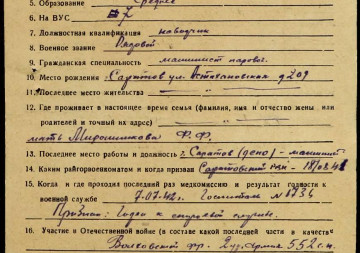 5. Образование Среднее
6. На ВУС #7
7. Должностная квалификация наводчик
8. Военное звание Рядовой
9. Гражданская специальность машинист паров.
10. Место рождения г. Саратов ул. Астраханская д 209
11. Последнее место жительства
12. Где проживает в настоящее время семья (фамилия, имя и отчество жены или
родителей и точный их адрес)
мать Мирошникова Ф. Ф.
13. Последнее место работы и должность г. Саратов (депо) - машинист
14. Каким райгорвоенкоматом и когда призван Саратовский 18/08.41
15. Когда и где проходил последний раз медкомиссию и результат годности к
военной службе 7.07.42г. Госпиталь №1734
Признан: годен к строевой службе.
16. Участие в Отечественной войне (в составе какой последней части в качестве
Волховской фр. 2 уд. Армия 552 с.п.